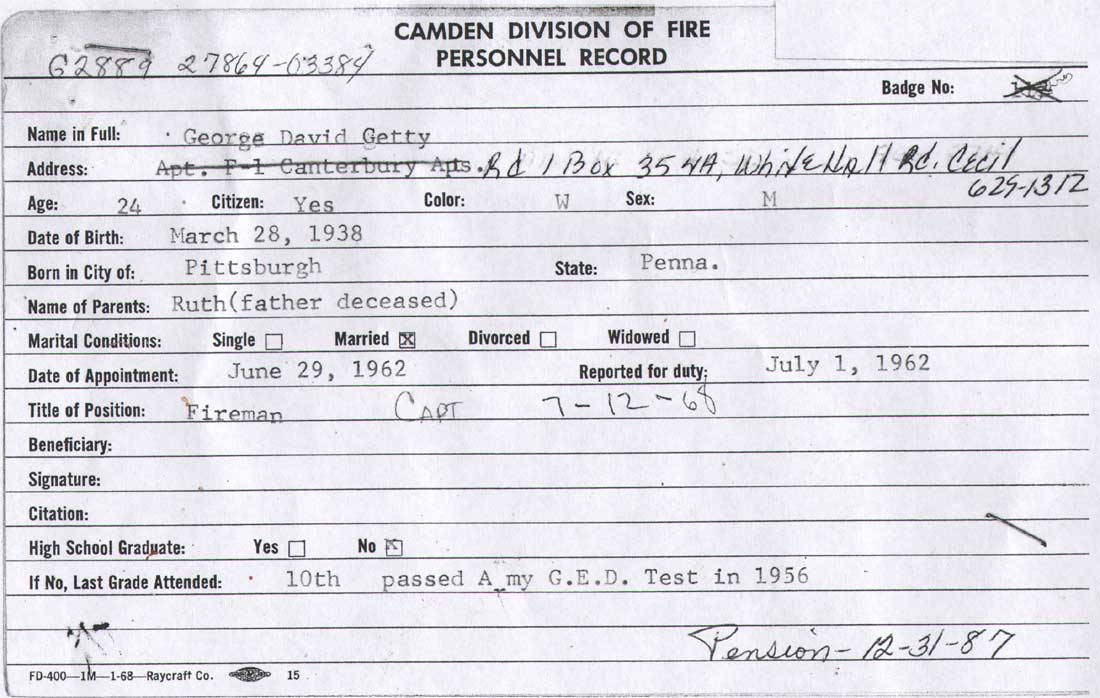 CAMDEN DIVISION OF FIRE
PERSONNEL RECORD
G2889 27864-03384
Badge No:
Name in Full: George David Getty
Address: Apt. F-1 Canterbury Apts. Rd 1 Box 354A, White Hall Rd. Cecil
629-1312
Age: 24 Citizen: Yes Color: W Sex: M
Date of Birth: March 28, 1938
Born in City of: Pittsburgh State: Penna.
Name of Parents: Ruth(father deceased)
Marital Conditions: Single Married X Divorced Widowed
Date of Appointment: June 29, 1962 Reported for duty: July 1, 1962
Title of Position: Fireman CAPT 7-12-68
Beneficiary:
Signature:
Citation:
High School Graduate: Yes No X
If No, Last Grade Attended: 10th passed A my G.E.D. Test in 1956
Pension-12-31-87
FD-400—1M—1-68—Raycraft Co. 15